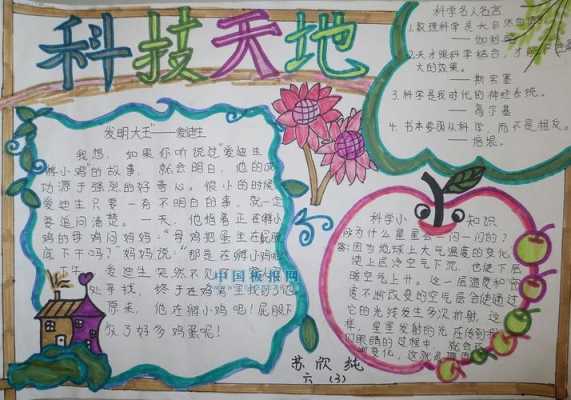 科技天地
发明大王"——爱迪生
我想，如果你听说过"爱迪生
孵小鸡"的故事，就会明白，他的成
功源于强烈的好奇心。很小的时候
爱迪生只要有不明白的事，就一定
要追问清楚。一天，他指着正在孵小
鸡的母鸡问妈妈："母鸡把蛋坐在屁股
底下干吗？"妈妈说："那是在孵小鸡呢
下午，爱迪生突然不见了，
处寻找，终于在鸡窝里找到了他
原来，他在孵小鸡呢！屁股下
放了好多鸡蛋呢！
中国板报网
科学名人名言
1.数理科学是大自然的语言。
——伽利略
2.天才跟科学结合，才能
大的效果。
——斯宾塞
3.科学是我时代的神经系统。
——高尔基
4.书本要跟从科学，而不是相反。
——培根。
科学小知识
问为什么星星会一闪一闪的？
答：因为地球上大气温度的变化，
使上层冷空气下沉，也使下层
暖空气上升。这一层温度和密
度不断改变的空气层会使通过
它的光线发生多次折射，这
样，星星发射的光在传到我
们眼睛的过程中，就会
变化，这就
苏欣纯
六（3）